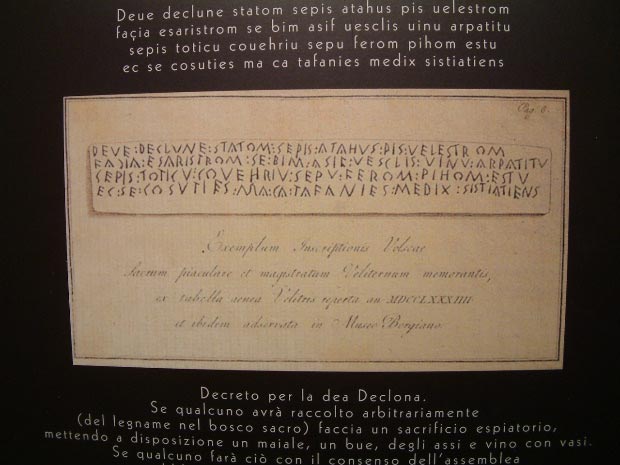 Deue declune statom sepis atahus pis uelestrom
façia esaristrom se bim asif uesclis uinu arpatitu
sepis toticu couehriu sepu ferom pihom estu
ec se cosuties ma ca tafanies medix sistiatiens
Pag. 6.
DEVE:DECLUNE:STATOM:SEPIS:ATAHUS:PIS:VELESTROM
FAϽIA:ESARISTROM:SE:BIM:ASIF:VESCLIS:VINU:ARPATITU
SEPIS:TOTICU:COVEHRIU:SEPU:FEROM:PIHOM:ESTU
EC:SE:COSUTIES:MA:CA:TAFANIES:MEDIX:SISTIATIENS
Exemplum Inscriptionis Volscae
Sacrum piaculare et magistratum Veliternum memorantis,
ex tabella aenea Velitris reperta an. MDCCLXXXIIII
et ibidem adservata in Museo Borgiano
Decreto per la dea Declona.
Se qualcuno avrà raccolto arbitrariamente
(del legname nel bosco sacro) faccia un sacrificio espiatorio,
mettendo a disposizione un maiale, un bue, degli assi e vino con vasi.
Se qualcuno farà ciò con il consenso dell'assemblea